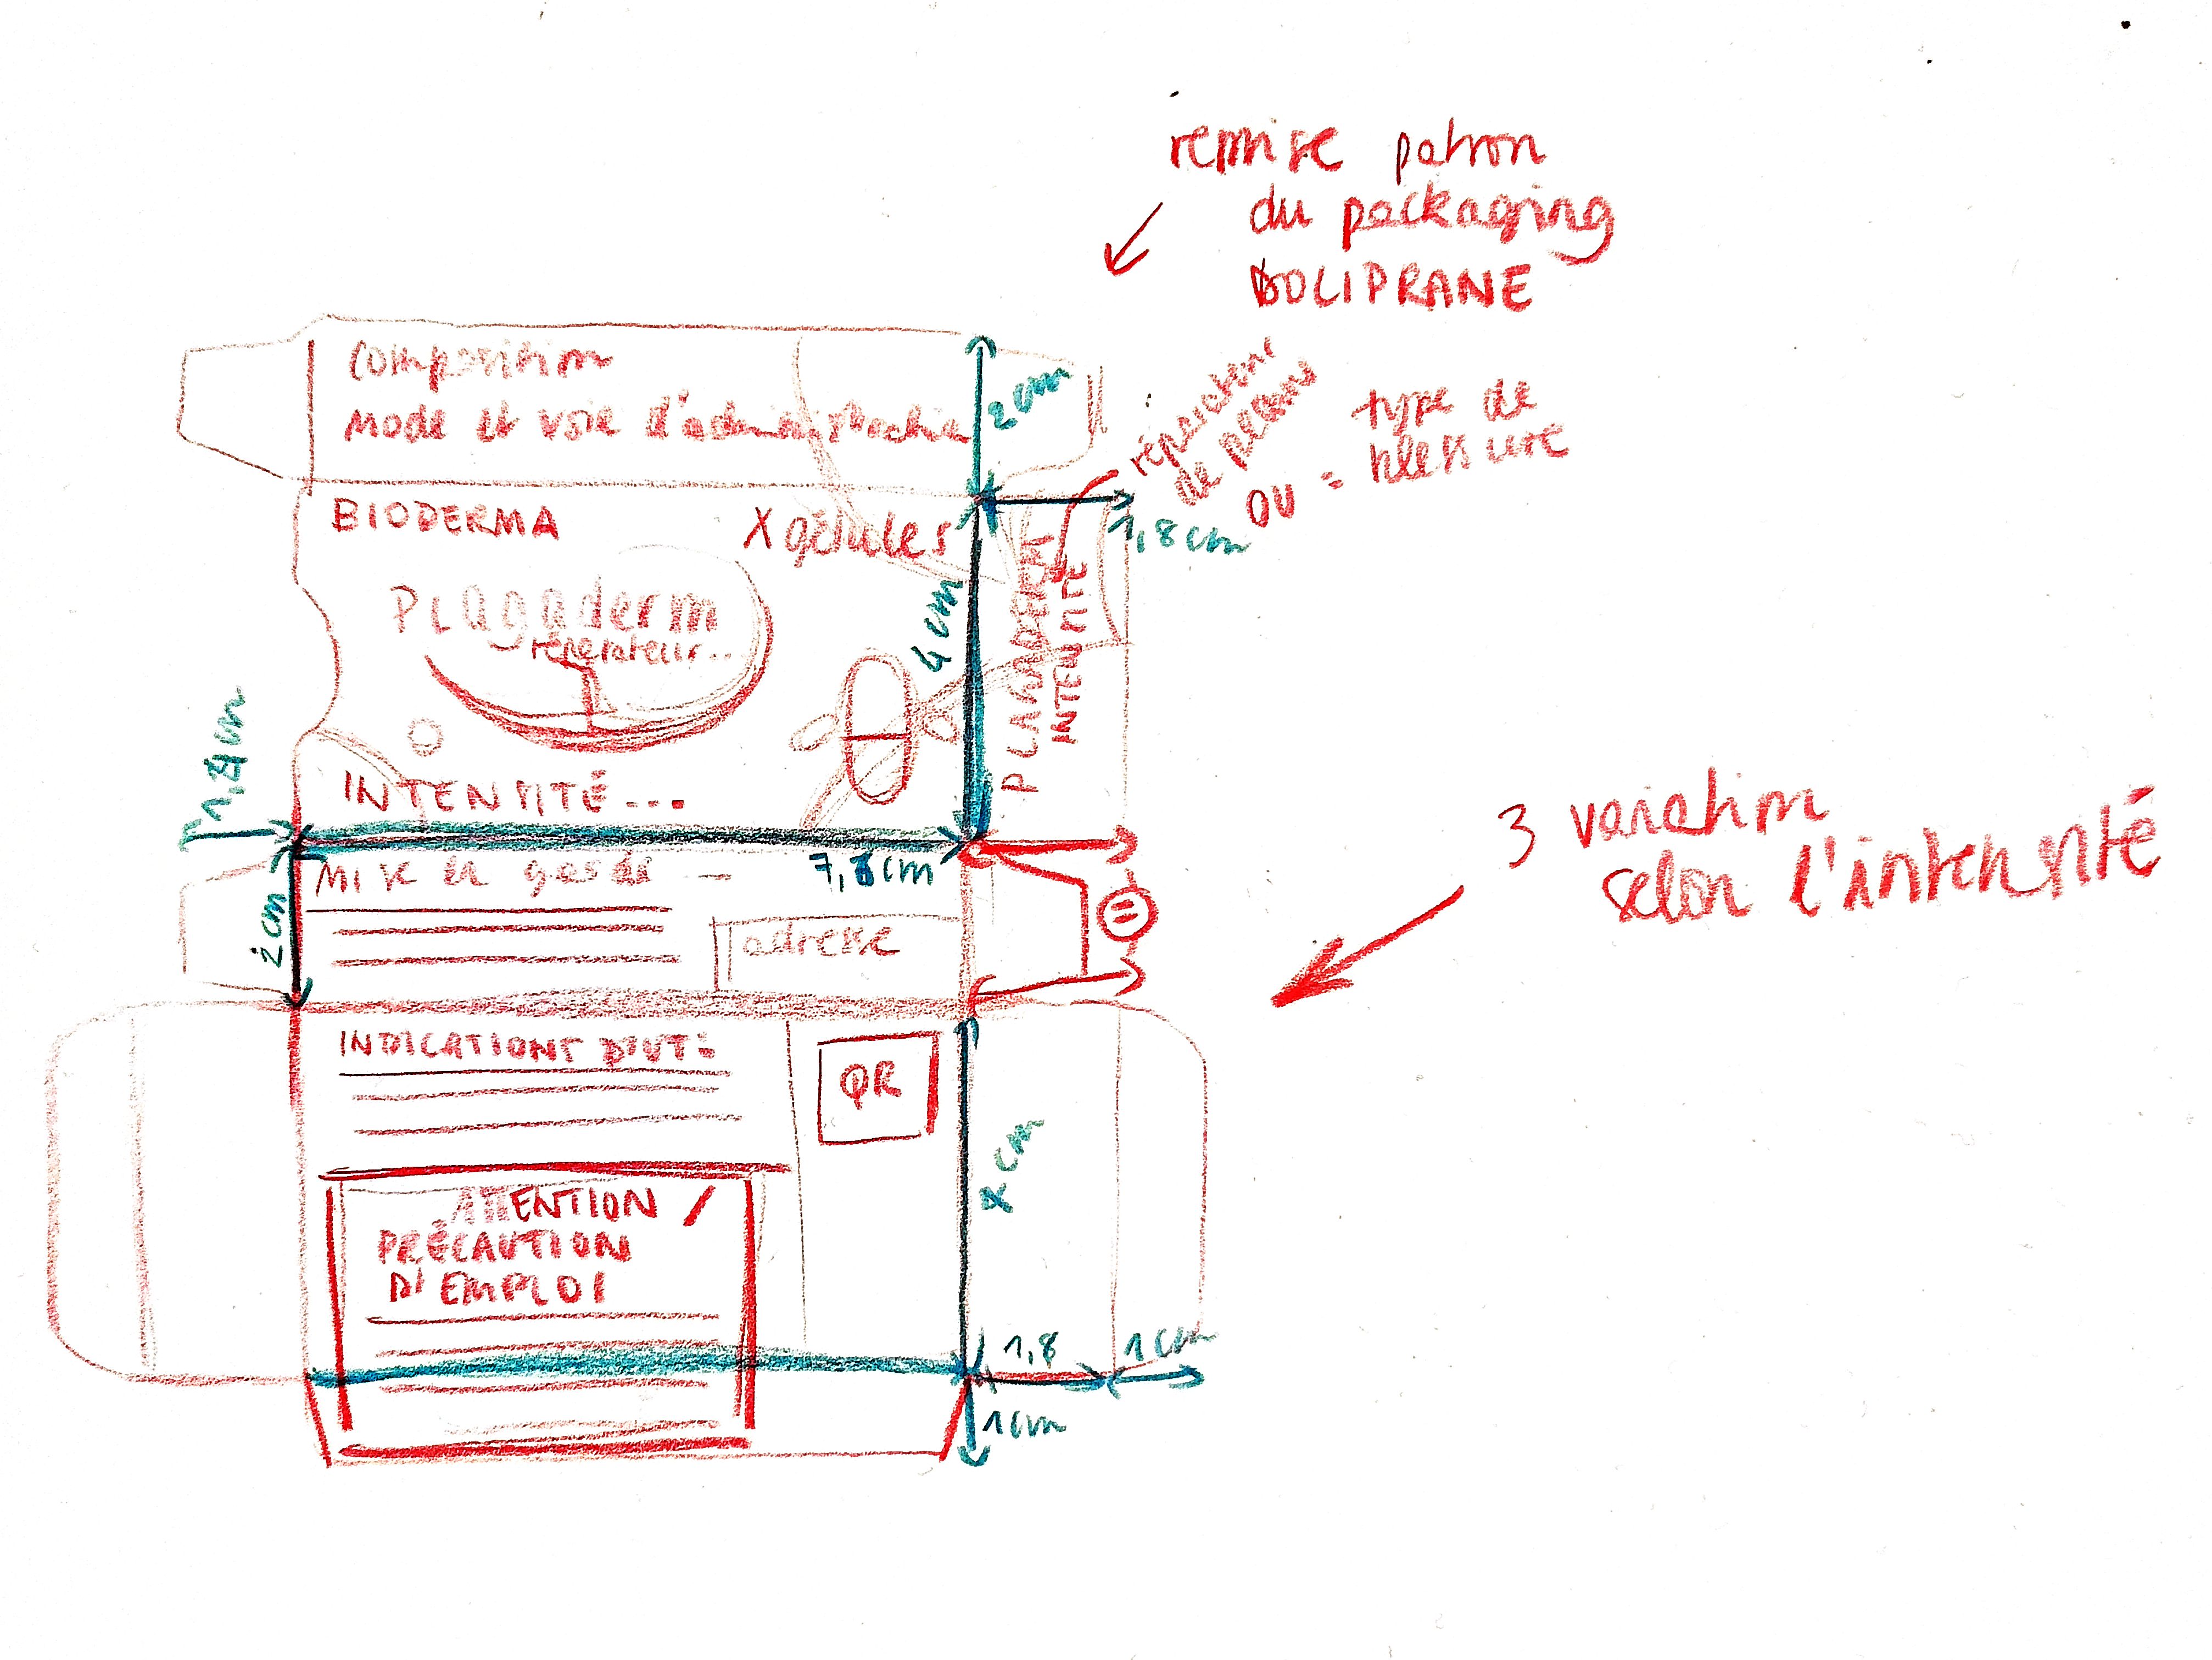 remise patron
du packaging
DOLIPRANE
composition
Mode et voie d'administration
2cm
réparateur
de peau
OU = type de
blessure
BIODERMA
X gélules
1,8cm
Plagaderm
réparateur...
4 cm
INTENSITÉ
INTENSITÉ...
7,8cm
Mise en garde
2cm
adresse
3 variation
selon l'intensité
INDICATIONS D'UT:
QR
cm
ATTENTION /
PRÉCAUTION
D'EMPLOI
1,8
1cm
1cm